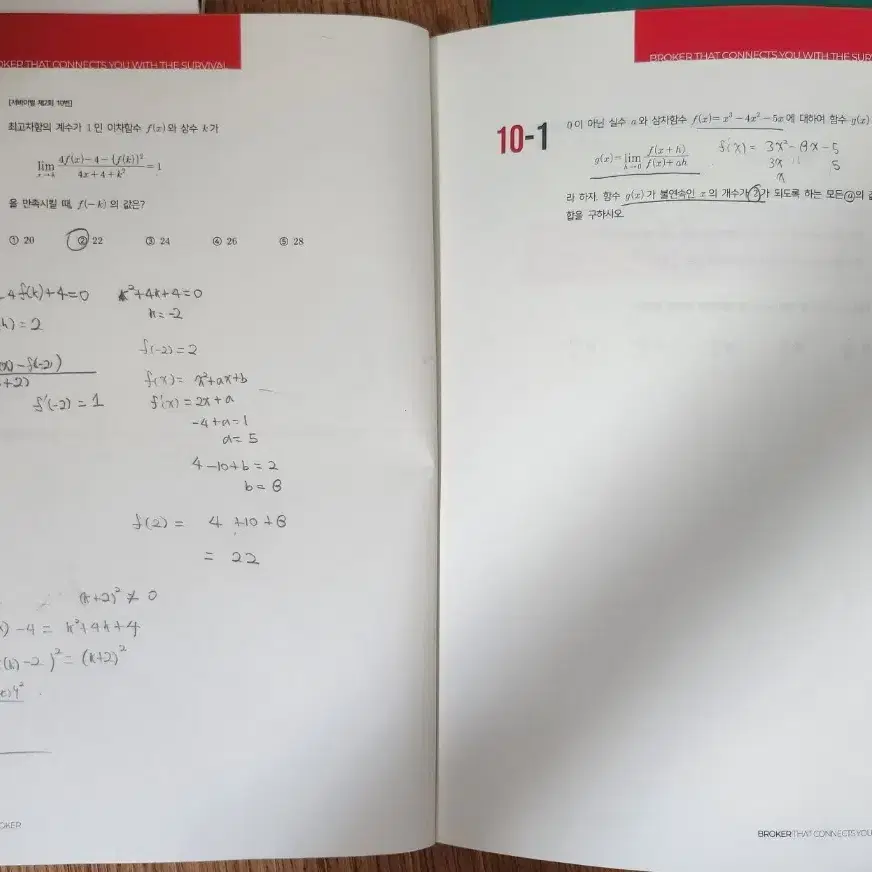 BROKER THAT CONNECTS YOU WITH THE SURVIVAL
[서바이벌 제2회 10번]
최고차항의 계수가 1인 이차함수 f(x)와 상수 k가
lim x→k (4f(x)-4-{f(k)}²)/(4x+4+k²) = 1
을 만족시킬 때, f(-k)의 값은?
① 20 ② 22 ③ 24 ④ 26 ⑤ 28
4f(k)+4=0 k²+4k+4=0
=2 k=-2
f(-2)=2
-f(-2))
+2) f(x)= x²+ax+b
f'(-2)=1 f'(x)=2x+a
-4+a=1
a=5
4-10+b=2
b=8
f(2)= 4+10+8
= 22
(k+2)²≠0
-4= k²+4k+4
(k)-2)²=(k+2)²
BROKER THAT CONNECTS YOU WITH THE SUR
10-1
0이 아닌 실수 a와 삼차함수 f(x)=x³-4x²-5x에 대하여 함수 g(x)
g(x)=lim h→0 f(x+h)/(f(x)+ah)
f'(x)= 3x²-8x-5
3x 5
x
라 하자. 함수 g(x)가 불연속인 x의 개수가 2가 되도록 하는 모든 a의
합을 구하시오.
BROKER THAT CONNECTS YOU